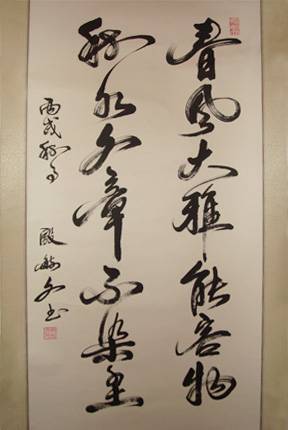 春风大雅能容物
秋水文章不染尘
丙戌秋月